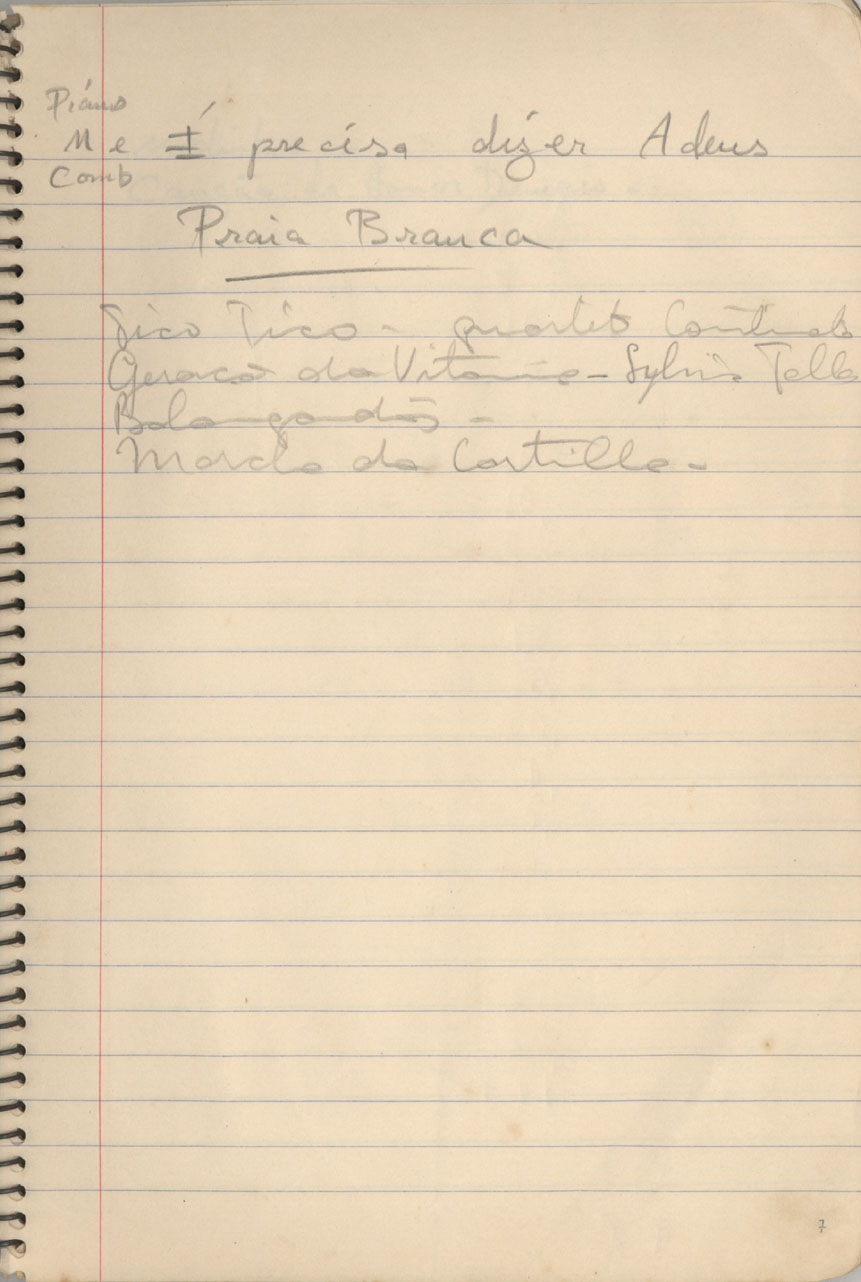 Piano
M e É preciso dizer Adeus
Comb
Praia Branca
Tico Tico - quarteto Continental
Geração da Vitamina - Sylvia Telles
Balangandãs -
Marcha da Cartilha -
7